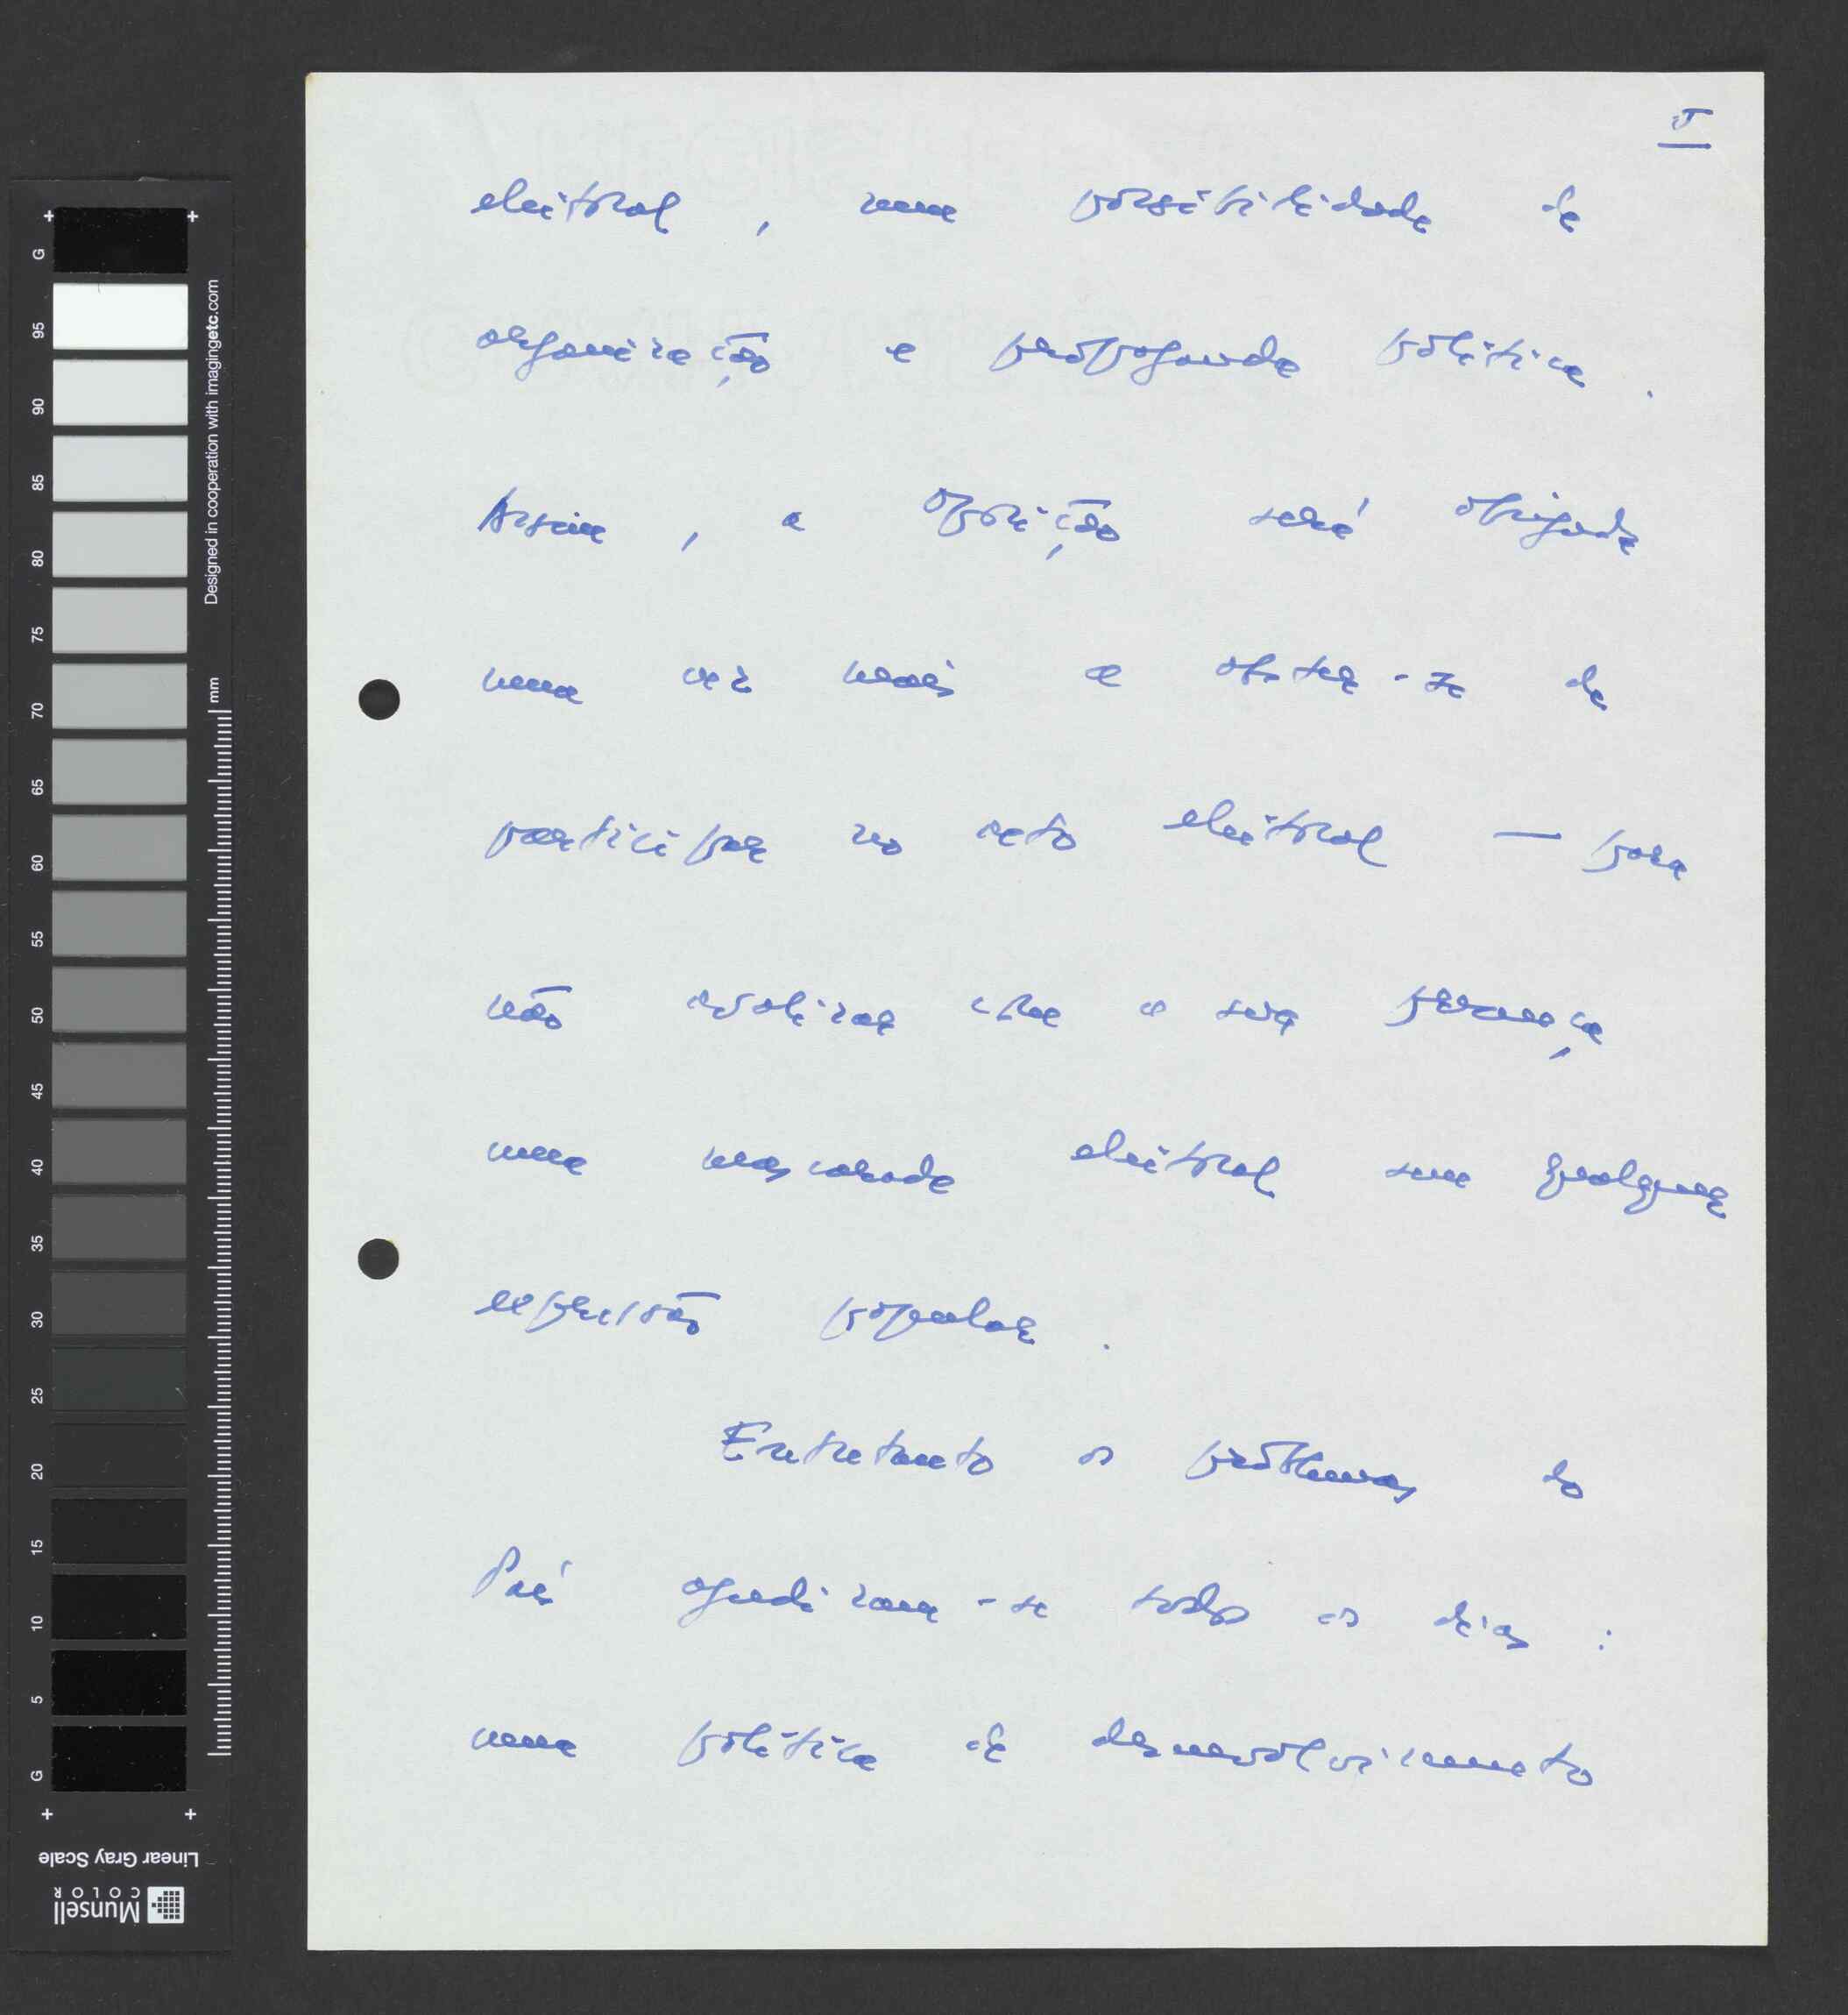 5
eleitoral, nem possibilidade de
organização e propaganda política.
Assim, a oposição será obrigada
uma vez mais a abster-se de
participar no acto eleitoral — para
não avalizar com a sua presença
uma mascarada eleitoral sem qualquer
expressão popular.
Entretanto os problemas do
País agudizam-se todos os dias:
uma política de desenvolvimento
G
95
90
85
80
75
70
65
60
55
50
45
40
35
30
25
20
15
10
5
G
mm
Designed in cooperation with imagingetc.com
Linear Gray Scale
Munsell
COLOR